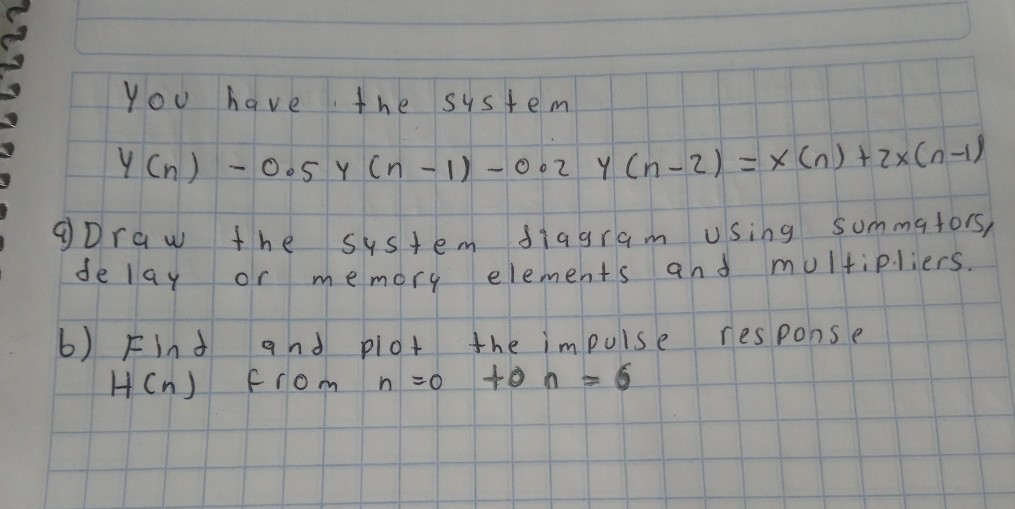 You have the system
Y(n) - 0.5 Y(n-1) - 0.2 Y(n-2) = x(n) + 2x(n-1)
a) Draw the system diagram using summators,
delay or memory elements and multipliers.
b) Find and plot the impulse response
H(n) from n=0 to n=6